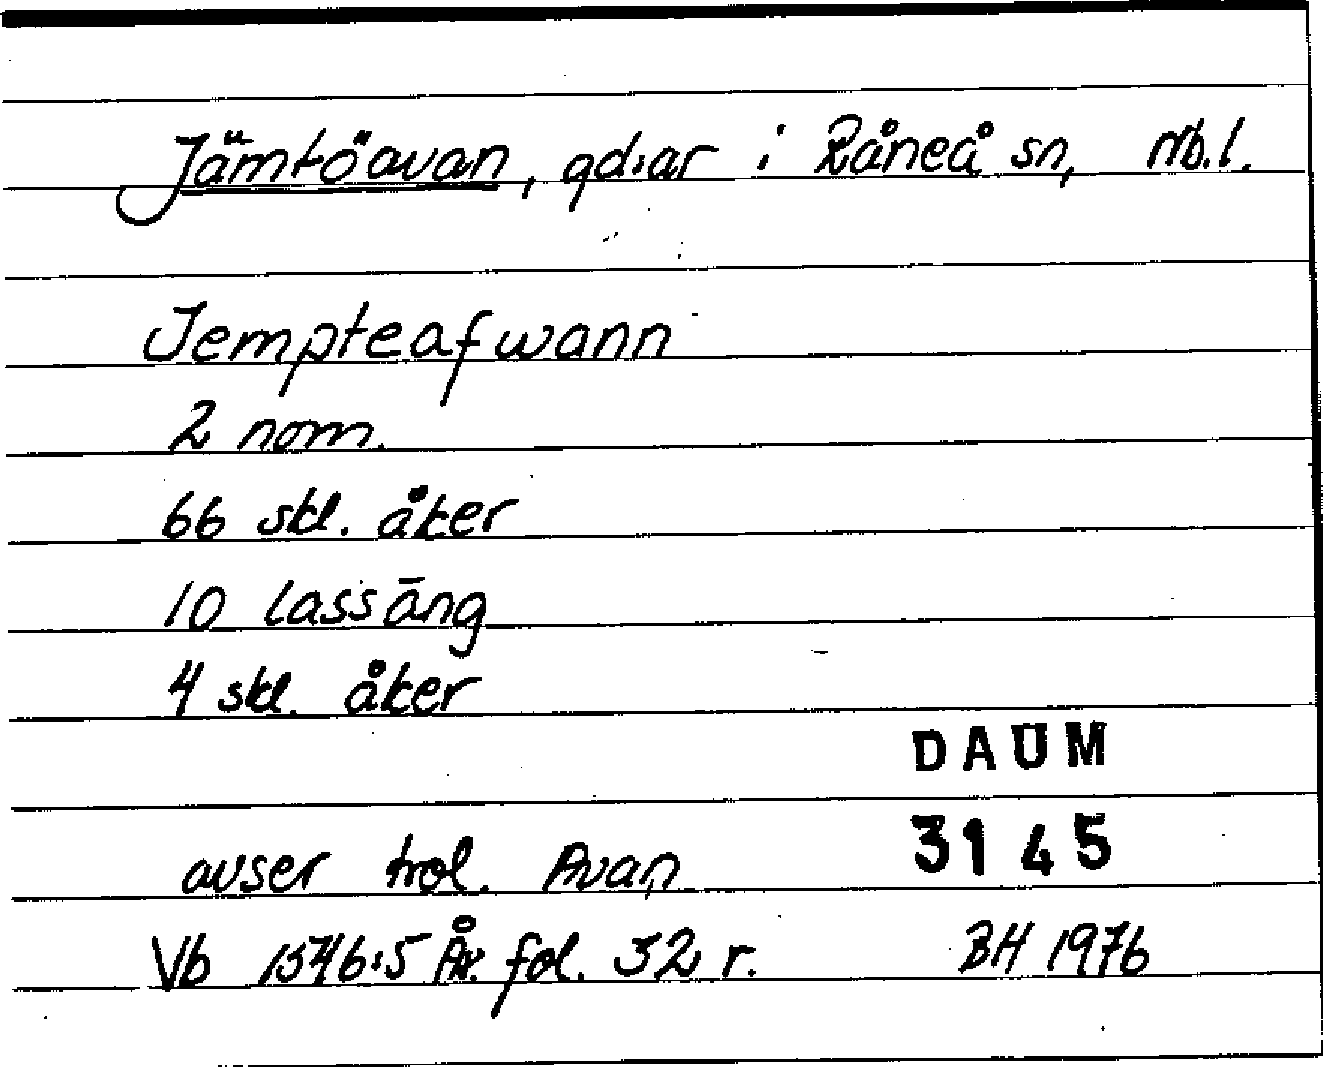 Jämtöavan, gd:ar i Råneå sn, Nb.l.
Jempteafwann
2 nom.
66 skl. åker
10 lass äng
4 skl. åker
DAUM
3145
avser trol. Avan
Vb 1546:5 År. fol. 32 r. BH 1976